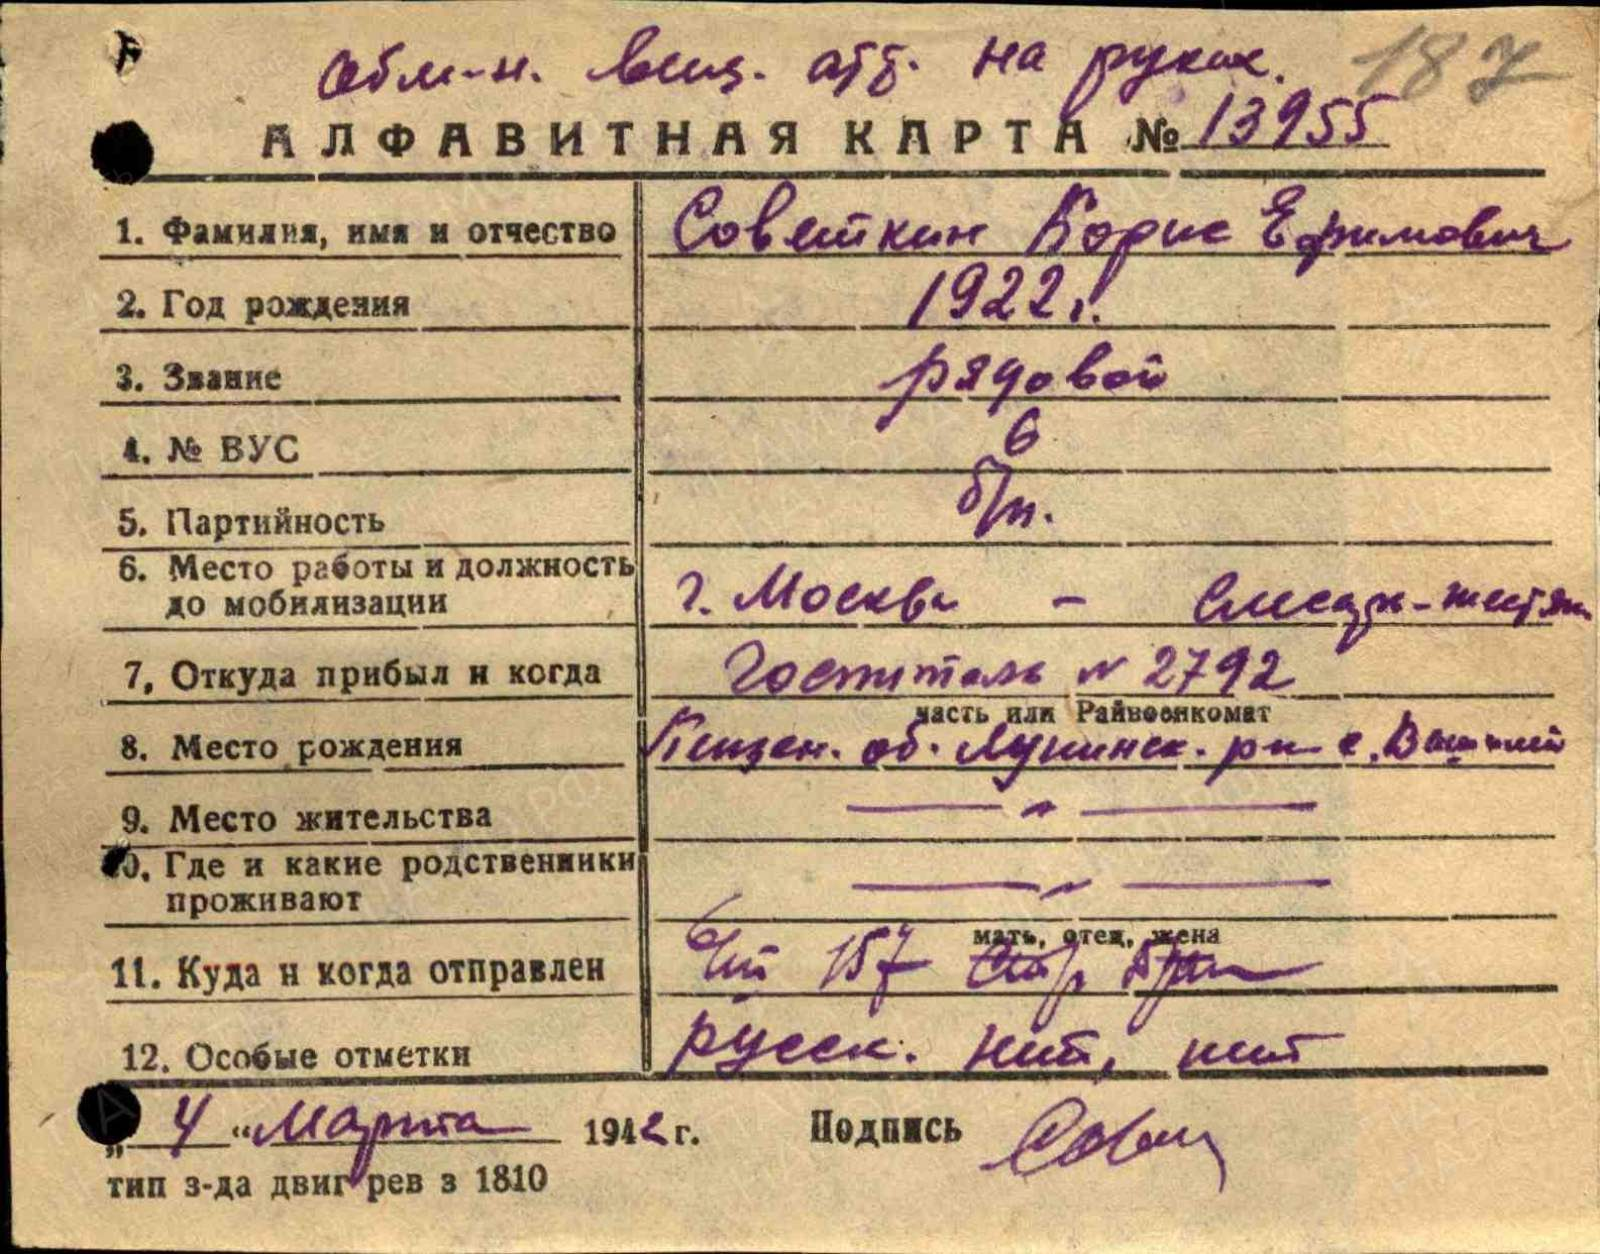 обм-н. вещ. атт. на руках. 187
АЛФАВИТНАЯ КАРТА № 13955
1. Фамилия, имя и отчество Советкин Борис Ефимович
2. Год рождения 1922 г.
3. Звание рядовой
4. № ВУС 6
5. Партийность б/п.
6. Место работы и должность до мобилизации г. Москва - Слесарь-жестян
7, Откуда прибыл и когда Госпиталь № 2792
часть или Райвоенкомат
8. Место рождения Пензен. об. Лунинск. р-н с.
9. Место жительства — " —
10. Где и какие родственники
проживают — " —
мать, отец, жена
11. Куда и когда отправлен 157
12. Особые отметки русск. нет, нет
„ 4 " Марта 1942 г. Подпись
тип з-да двиг рев з 1810